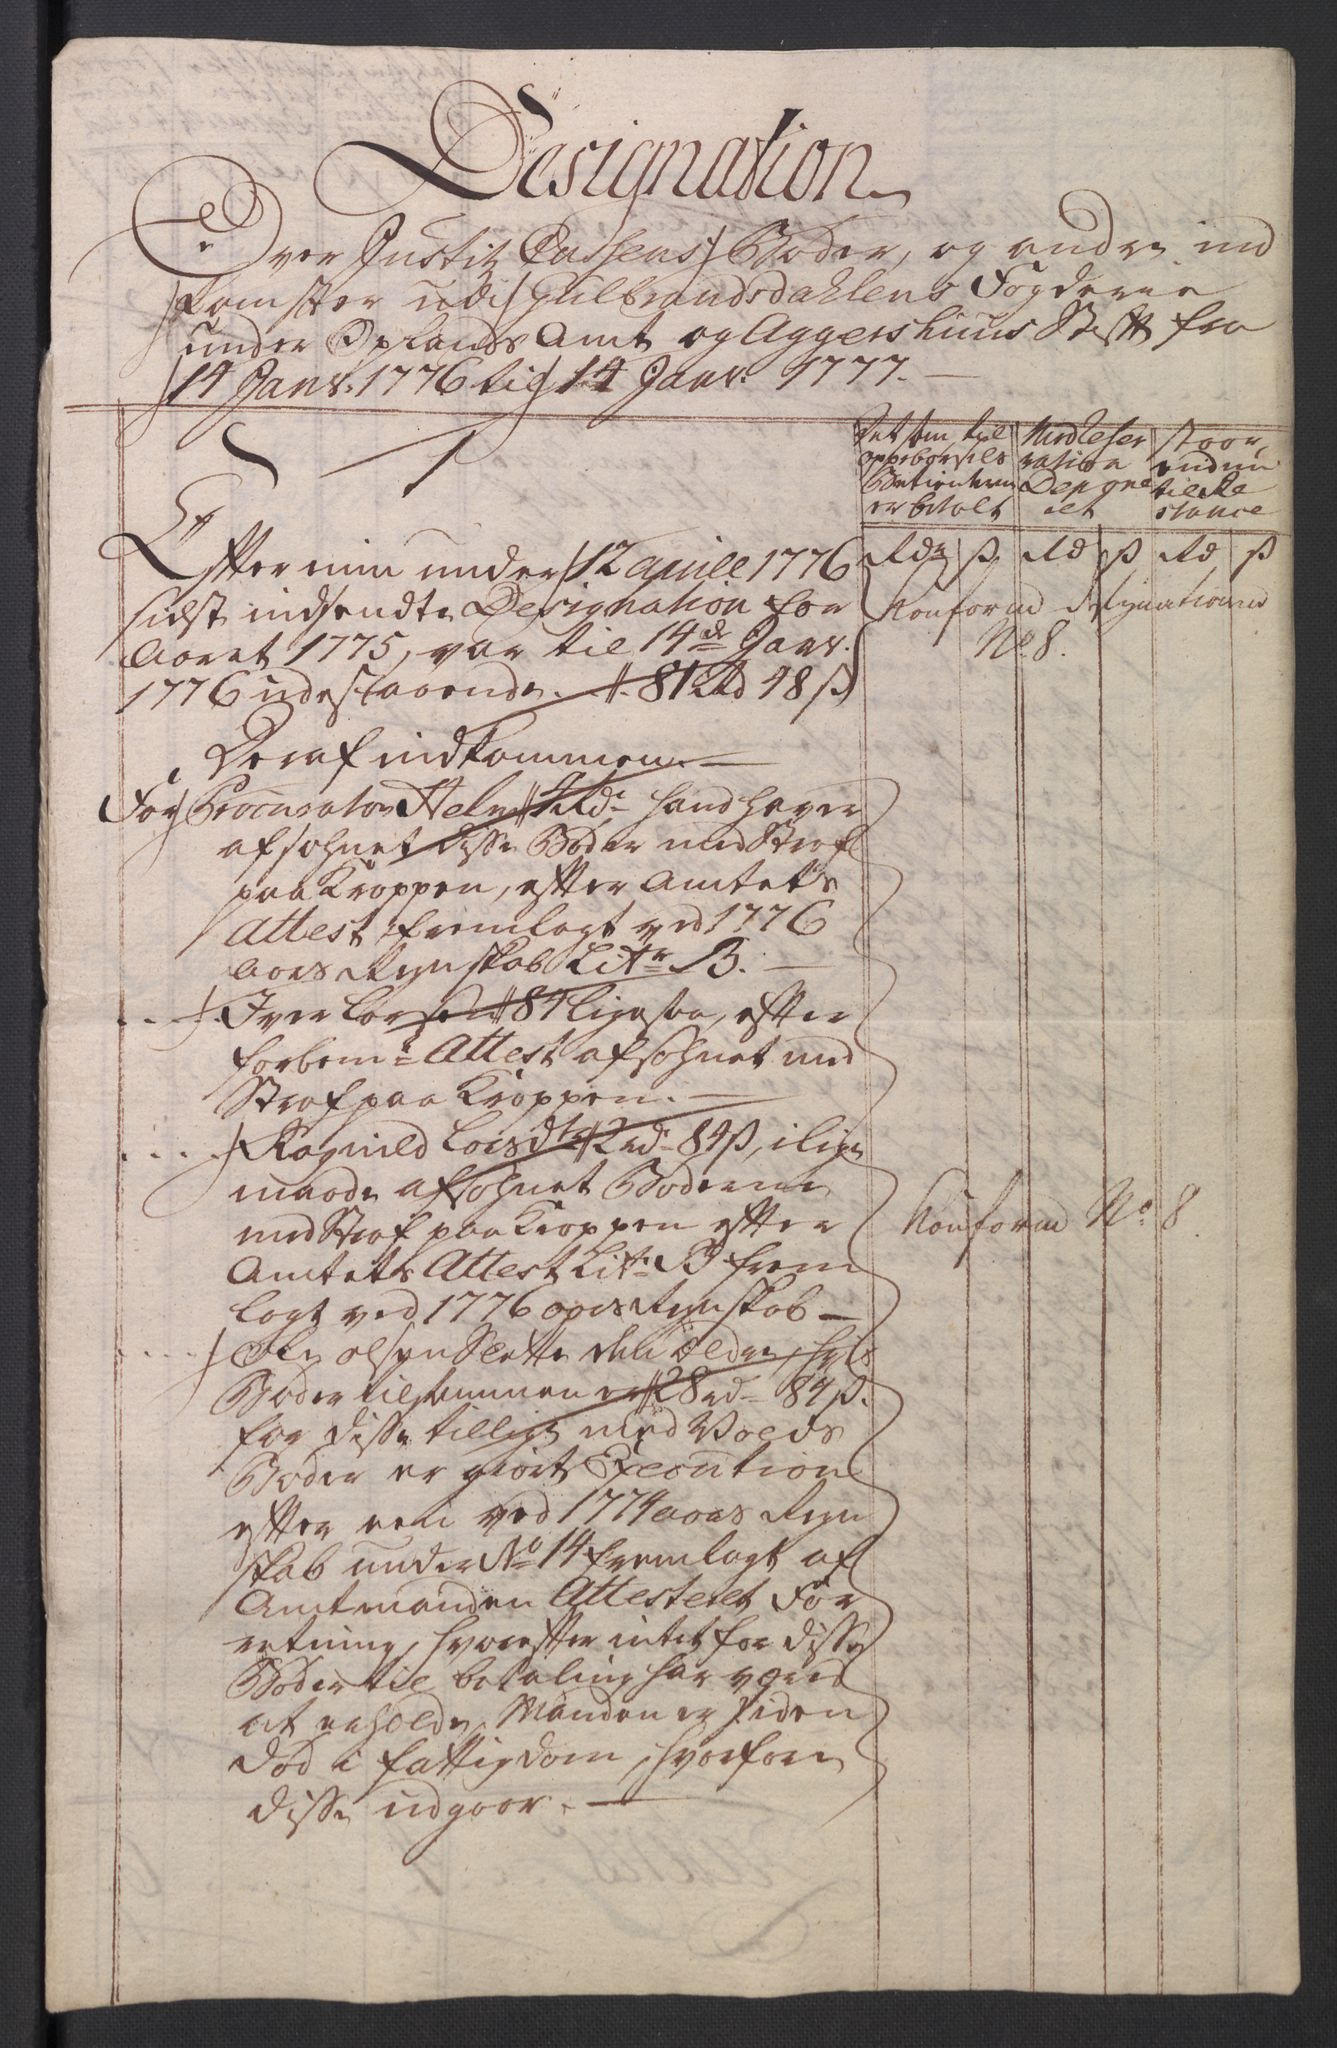 Designation
Over Justitz Cassens Bøder, og andre ind
komster udi Gulbrandsdahlens Fogderie
under Oplands Amt og Aggershuus Stift fra
14 Janv. 1776 til 14 Janv. 1777.
Det som til
oppebørsels
Betienterne
er betalt
Ved Leser
ration
Deqve
ret
staar
endnu
til Re
stance
1
Rdr ß Rd ß Rd ß
Efter min under 12 aprill 1776
sidst indsendte Designation for
Aaret 1775, var til 14de Janv.
1776 udestaaende # 81 Rd 48 ß
Konform designationens
No. 8.
Deraf indkommen.
For Procurator Helm # 4 Rdr hand haver
afsohnet disse Bøder med Straf
paa Kroppen, efter Amtets
Attest fremlagt ved 1776
Aars Regnskab Litr B.
Iver Larsen # 84 ligesaa, efter
forbemte Attest afsohnet med
Straf paa Kroppen.
Ragnild Larsdtr # 2 rd 84 ß, i lige
maade afsohnet Bøderne
med Straf paa Kroppen efter
Amtets Attest Litr B frem
lagt ved 1776 aars Regnskab
Konform No. 8
Ole Olsen Slette den Eldre, hvis
Bøder tilsammen er # 28 rd 84 ß.
for disse tillige med Volds
Bøder er giort Execution
efter een ved 1774 aars Regn
skab under No 14 fremlagt af
Amtmanden Attesteret For
retning, hvorefter intet for disse
Bøder til betaling har været
at erholde, Manden er siden
død i fattigdom, hvorfore
disse udgaar.